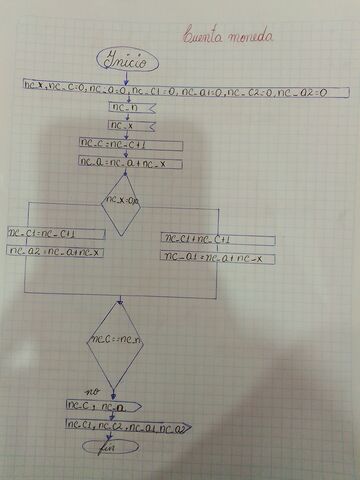 Cuenta moneda
Inicio
nc_x, nc_c=0, nc_a=0, nc_c1=0, nc_a1=0, nc_c2=0, nc_a2=0
nc_n
nc_x
nc_c=nc_c+1
nc_a=nc_a+nc_x
nc_c1=nc_c+1
nc_a2=nc_a+nc_x
nc_c1+nc_c+1
nc_a1=nc_a+nc_x
nc_c==nc_n
no
nc_c, nc_n
nc_c1, nc_c2, nc_a1, nc_a2
fin